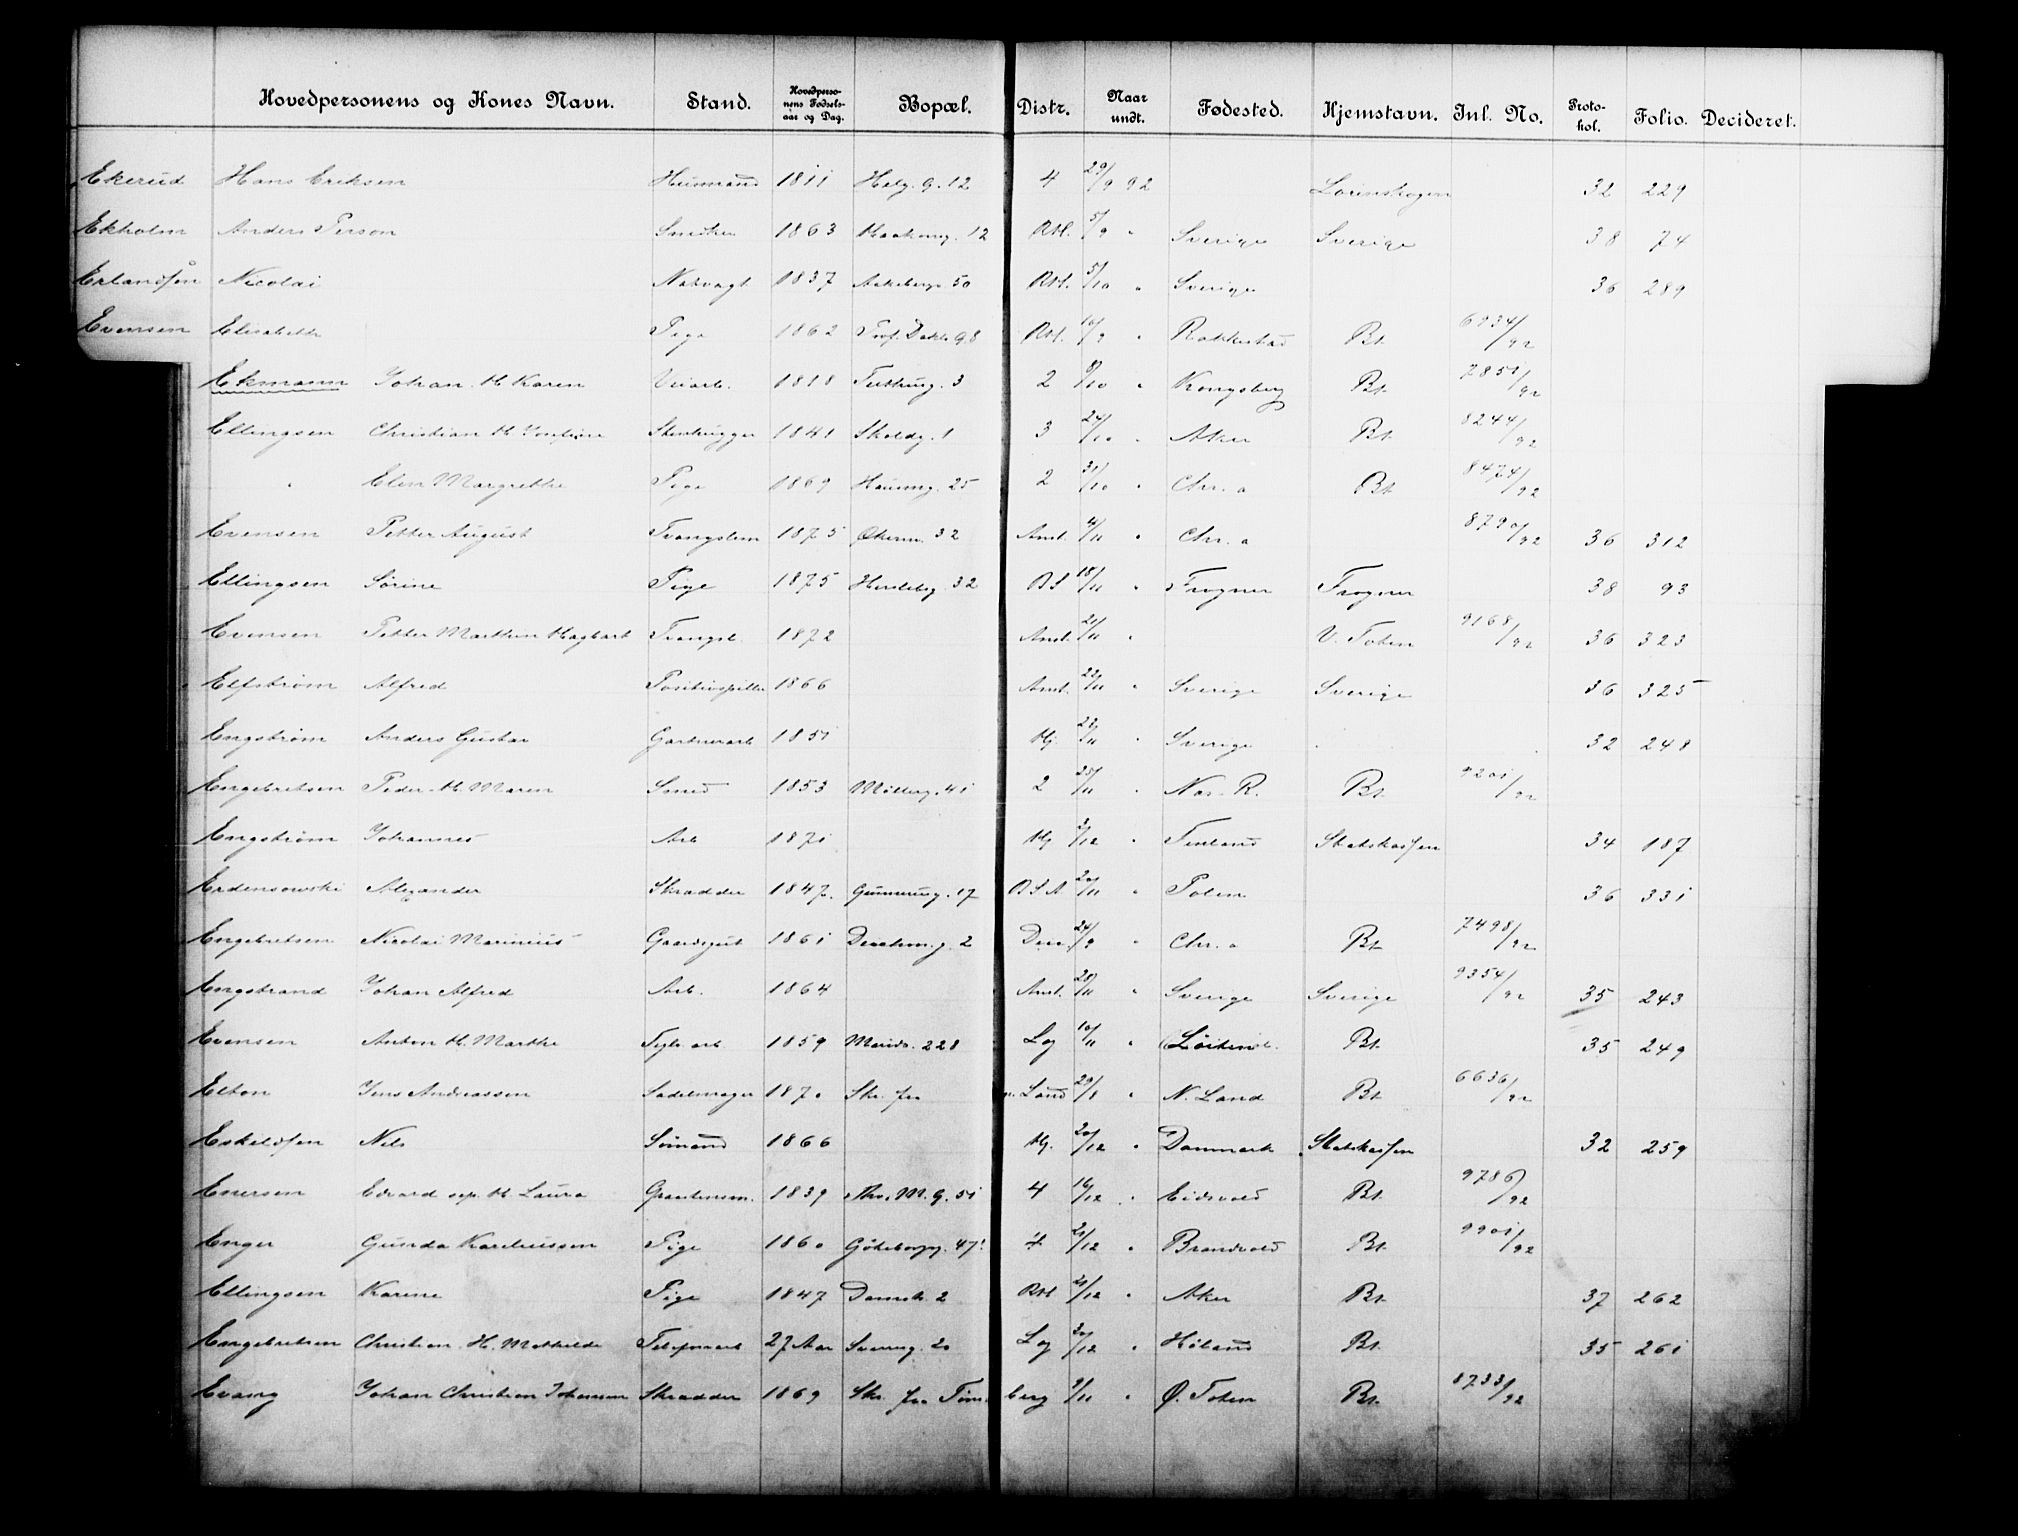 Hovedpersonens og Kones Navn. Stand. Hovedperso-nens Fødsels-aar og Dag. Bopæl. Distr. Naar undt. Fødested. Hjemstavn. Inl. No. Proto-kol. Folio. Decideret.
Ekerud Hans Eriksen Husmand 1811 Helg. g. 12 4 29/9 92 Lørenskogen 32 229
Ekholm Anders Person Snedker 1863 12 RH. 5/9 " Sverige Sverige 38 74
Erlandsen Nicolai Natvagt 1837 Akebergv 50 RH. 5/10 " Sverige 36 289
Evensen Elisabeth Pige 1862 Prof. Dahls g 8 RH. 10/9 " Rakkestad Bt 6934/92
Ekmann Johan H Karen Veiarb. 1818 3 2 9/10 " Kongsberg Bt 7851/92
Ellingsen Christian H Josefine Stenhugger 1841 Skoldg. 1 3 24/10 " Aker Bt 8244/92
" Elen Margrethe Pige 1869 Hausmg. 25 2 31/10 " Chr. a Bt 8474/92
Evensen Petter August Tvangslem 1875 Økern. 32 Anst. 4/11 " Chr. a 8790/92 36 312
Ellingsen Sørine Pige 1875 32 BS 18/11 " Frogner Frogner 38 93
Evensen Petter Marthin Hagbart Tvangsl. 1872 Anst. 21/11 " V. Toten 9168/92 36 323
Elfstrøm Alfred Positivspiller 1866 Anst. 22/11 " Sverige Sverige 36 325
Engstrøm Anders Gustav Gartnerarb 1851 Hj. 22/11 " Sverige 32 248
Engebretsen Peder H. Maren Smed 1853 Møllerg. 41 2 25/11 " Nes R. Bt 9201/92
Engstrøm Johannes Arb 1871 Hj /12 " Finland Statskassen 34 187
Erdensowski Alexander Skrædder 1847. Gunnerusg. 17 B S A 20/11 " Polen 36 331
Engebretsen Nicolai Marinius Gaardsgut 1861 2 24/9 " Chr. a Bt 7498/92
Engstrand Johan Alfred Arb. 1864 Anst. 28/11 " Sverige Sverige 9354/92 35 243
Evensen Anton H. Marthe Tegls arb. 1859 Marids. 228 Lg 10/11 " Løiten Bt 35 249
Elton Jens Andreassen Sadelmager 1870 Skr. fra n. Land 29/8 " N. Land Bt 6636/92
Eskildsen Nils Sømand 1866 Hj. 20/12 " Danmark Statskassen 32 259
Enersen Edvard sep. H. Laura 1839 Thv. M. g. 51 4 16/12 " Eidsvold Bt 9786/92
Enger Gunda Kareliussen Pige 1860 Gøteborgg. 47 4 21/12 " Brandvold Bt 9901/92
Ellingsen Karine Pige 1847 Damstr. 2 RH 21/12 " Aker Bt 37 262
Engebretsen Christian H. Mathilde Telefonarb 27 Aar Sverreg. 20 Lg /12 " Høland Bt 35 261
Evang Johan Christian Johansen Skrædder 1869 Skr. fra Tønsberg 3/11 " Ø. Toten Bt. 8733/92